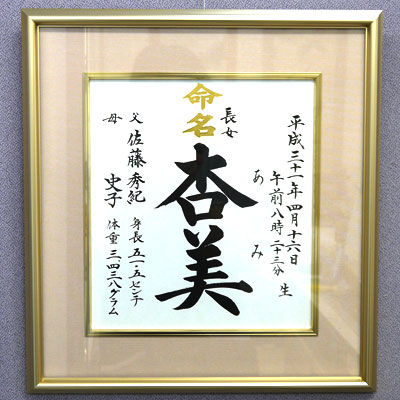 命名
平成三十一年四月十六日
午前八時二十三分 生
長女
あみ
杏美
父 佐藤秀紀
母 史子
身長 五一・五センチ
体重 三四三八グラム